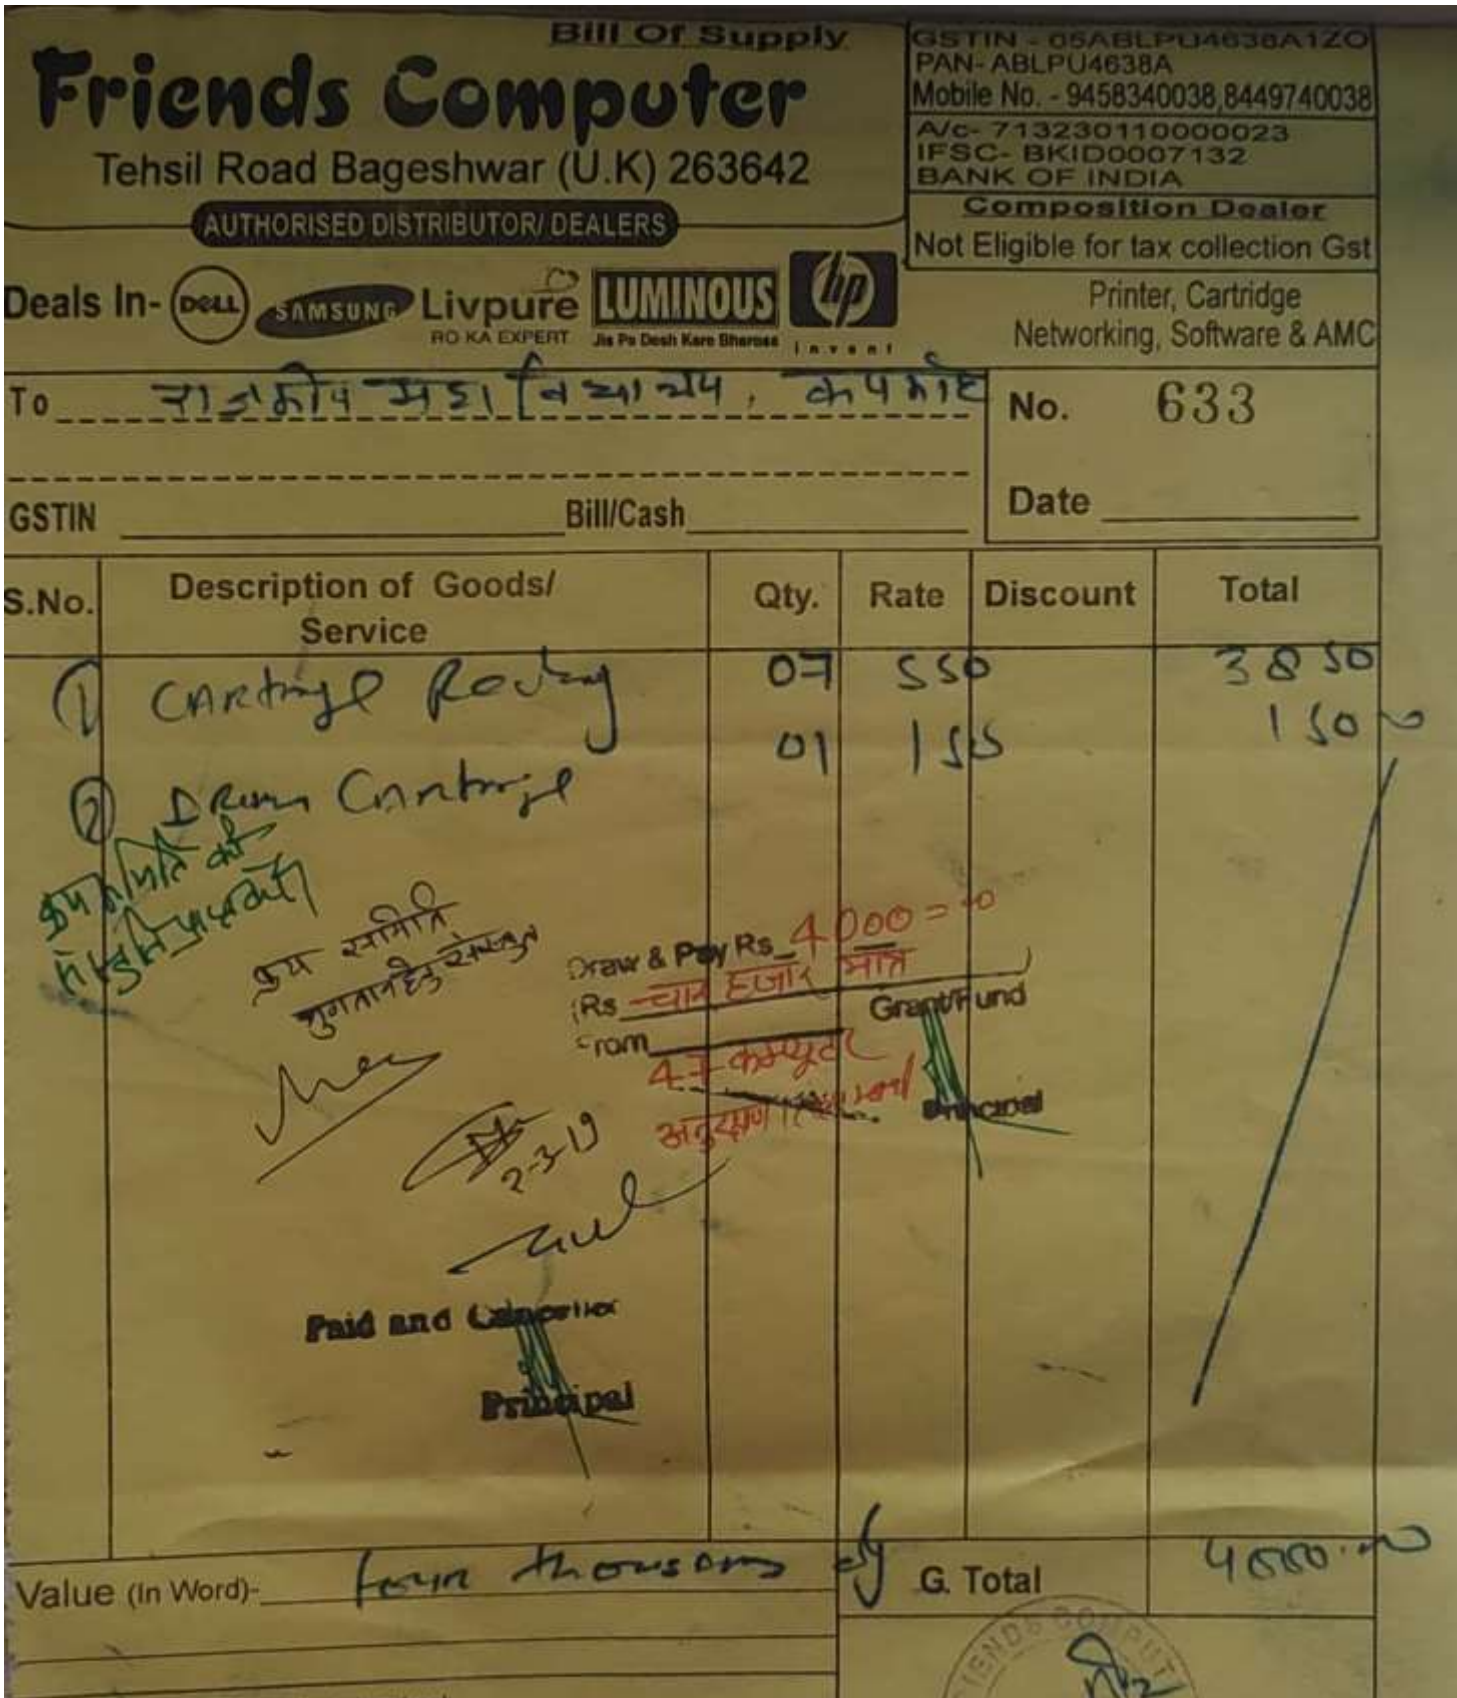 Bill Of Supply
Friends Computer
Tehsil Road Bageshwar (U.K) 263642
AUTHORISED DISTRIBUTOR/ DEALERS
GSTIN - 05ABLPU4638A1ZO
PAN- ABLPU4638A
Mobile No. - 9458340038,8449740038
A/c- 713230110000023
IFSC- BKID0007132
BANK OF INDIA
Composition Dealer
Not Eligible for tax collection Gst
Deals In- DELL SAMSUNG Livpure LUMINOUS hp
RO KA EXPERT Jis Pe Desh Kare Bharosa invent
Printer, Cartridge
Networking, Software & AMC
To राजकीय महाविद्यालय, कपकोट
No. 633
Date
GSTIN Bill/Cash
S.No. Description of Goods/ Service Qty. Rate Discount Total
1 07 550 3850
01 150
2 Drum Cartridge
क्रय समिति की
क्रय समिति
भुगतान हेतु संस्तुत
Draw & Pay Rs 4000=00
(Rs चार हजार मात्र )
From Grant/Fund
47 कम्प्यूटर
अनुरक्षण
Principal
2-3-19
Paid and Cancelled
Principal
Value (In Word)- four thousand only
G. Total 4000.00
FRIENDS COMPUT